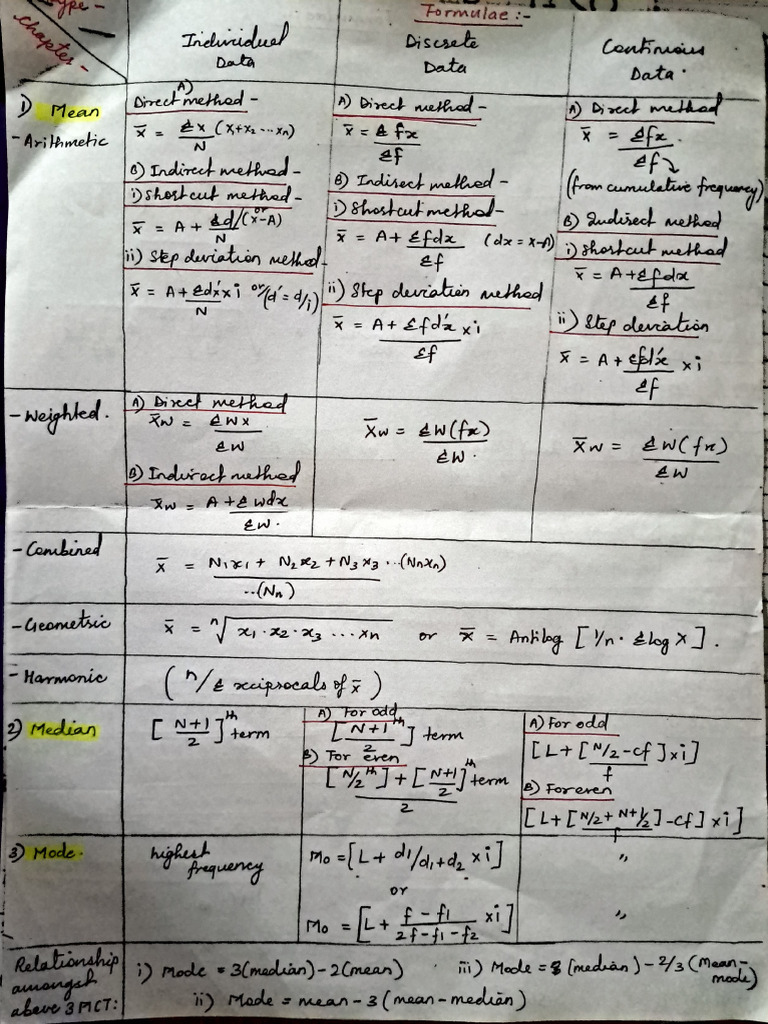 Type -
Chapter -
Formulae :-
Individual Data
Discrete Data
Continuous Data.
1) Mean
- Arithmetic
A)
Direct method -
x̄ = Σx (x₁+x₂...xₙ)
N
B) Indirect method -
i) Shortcut method -
x̄ = A + Σd/(x-A) or
N
ii) Step deviation method -
x̄ = A + Σd'x × i or (d' = d/i)
N
A) Direct method -
x̄ = Σfx
Σf
B) Indirect method -
i) Shortcut method -
x̄ = A + Σfdx (dx = x-A)
Σf
ii) Step deviation method
x̄ = A + Σfd'x × i
Σf
A) Direct method
x̄ = Σfx.
Σf
(from cumulative frequency)
B) Indirect method
i) Shortcut method
x̄ = A + Σfdx
Σf
ii) Step deviation
x̄ = A + Σfd'x × i
Σf
- Weighted.
A) Direct method
x̄w = Σwx
Σw
B) Indirect method
x̄w = A + Σwdx
Σw.
x̄w = Σw(fx)
Σw.
x̄w = Σw(fx)
Σw
- Combined
x̄ = N₁x₁ + N₂x₂ + N₃x₃ ...(Nₙxₙ)
...(Nₙ)
- Geometric
x̄ = ⁿ√x₁·x₂·x₃ ...xₙ or x̄ = Antilog [1/n · Σlog x].
- Harmonic
(n/Σ reciprocals of x̄)
2) Median
[N+1/2]ᵗʰ term
A) For odd
[N+1/2]ᵗʰ term
B) For even
[N/2ᵗʰ] + [N+1/2]ᵗʰ term
2
A) For odd
[L + [N/2 - cf] × i]
f
B) For even
[L + [N/2 + N+1/2] - cf] × i]
f
3) Mode.
highest frequency
Mo = [L + d₁/d₁+d₂ × i]
or
Mo = [L + f - f₁ × i]
2f - f₁ - f₂
"
"
Relationship
amongst
above 3 MCT:
i) Mode = 3(median) - 2(mean)
iii) Mode = 3 (median) - 2/3 (Mean - mode)
ii) Mode = mean - 3 (mean - median)